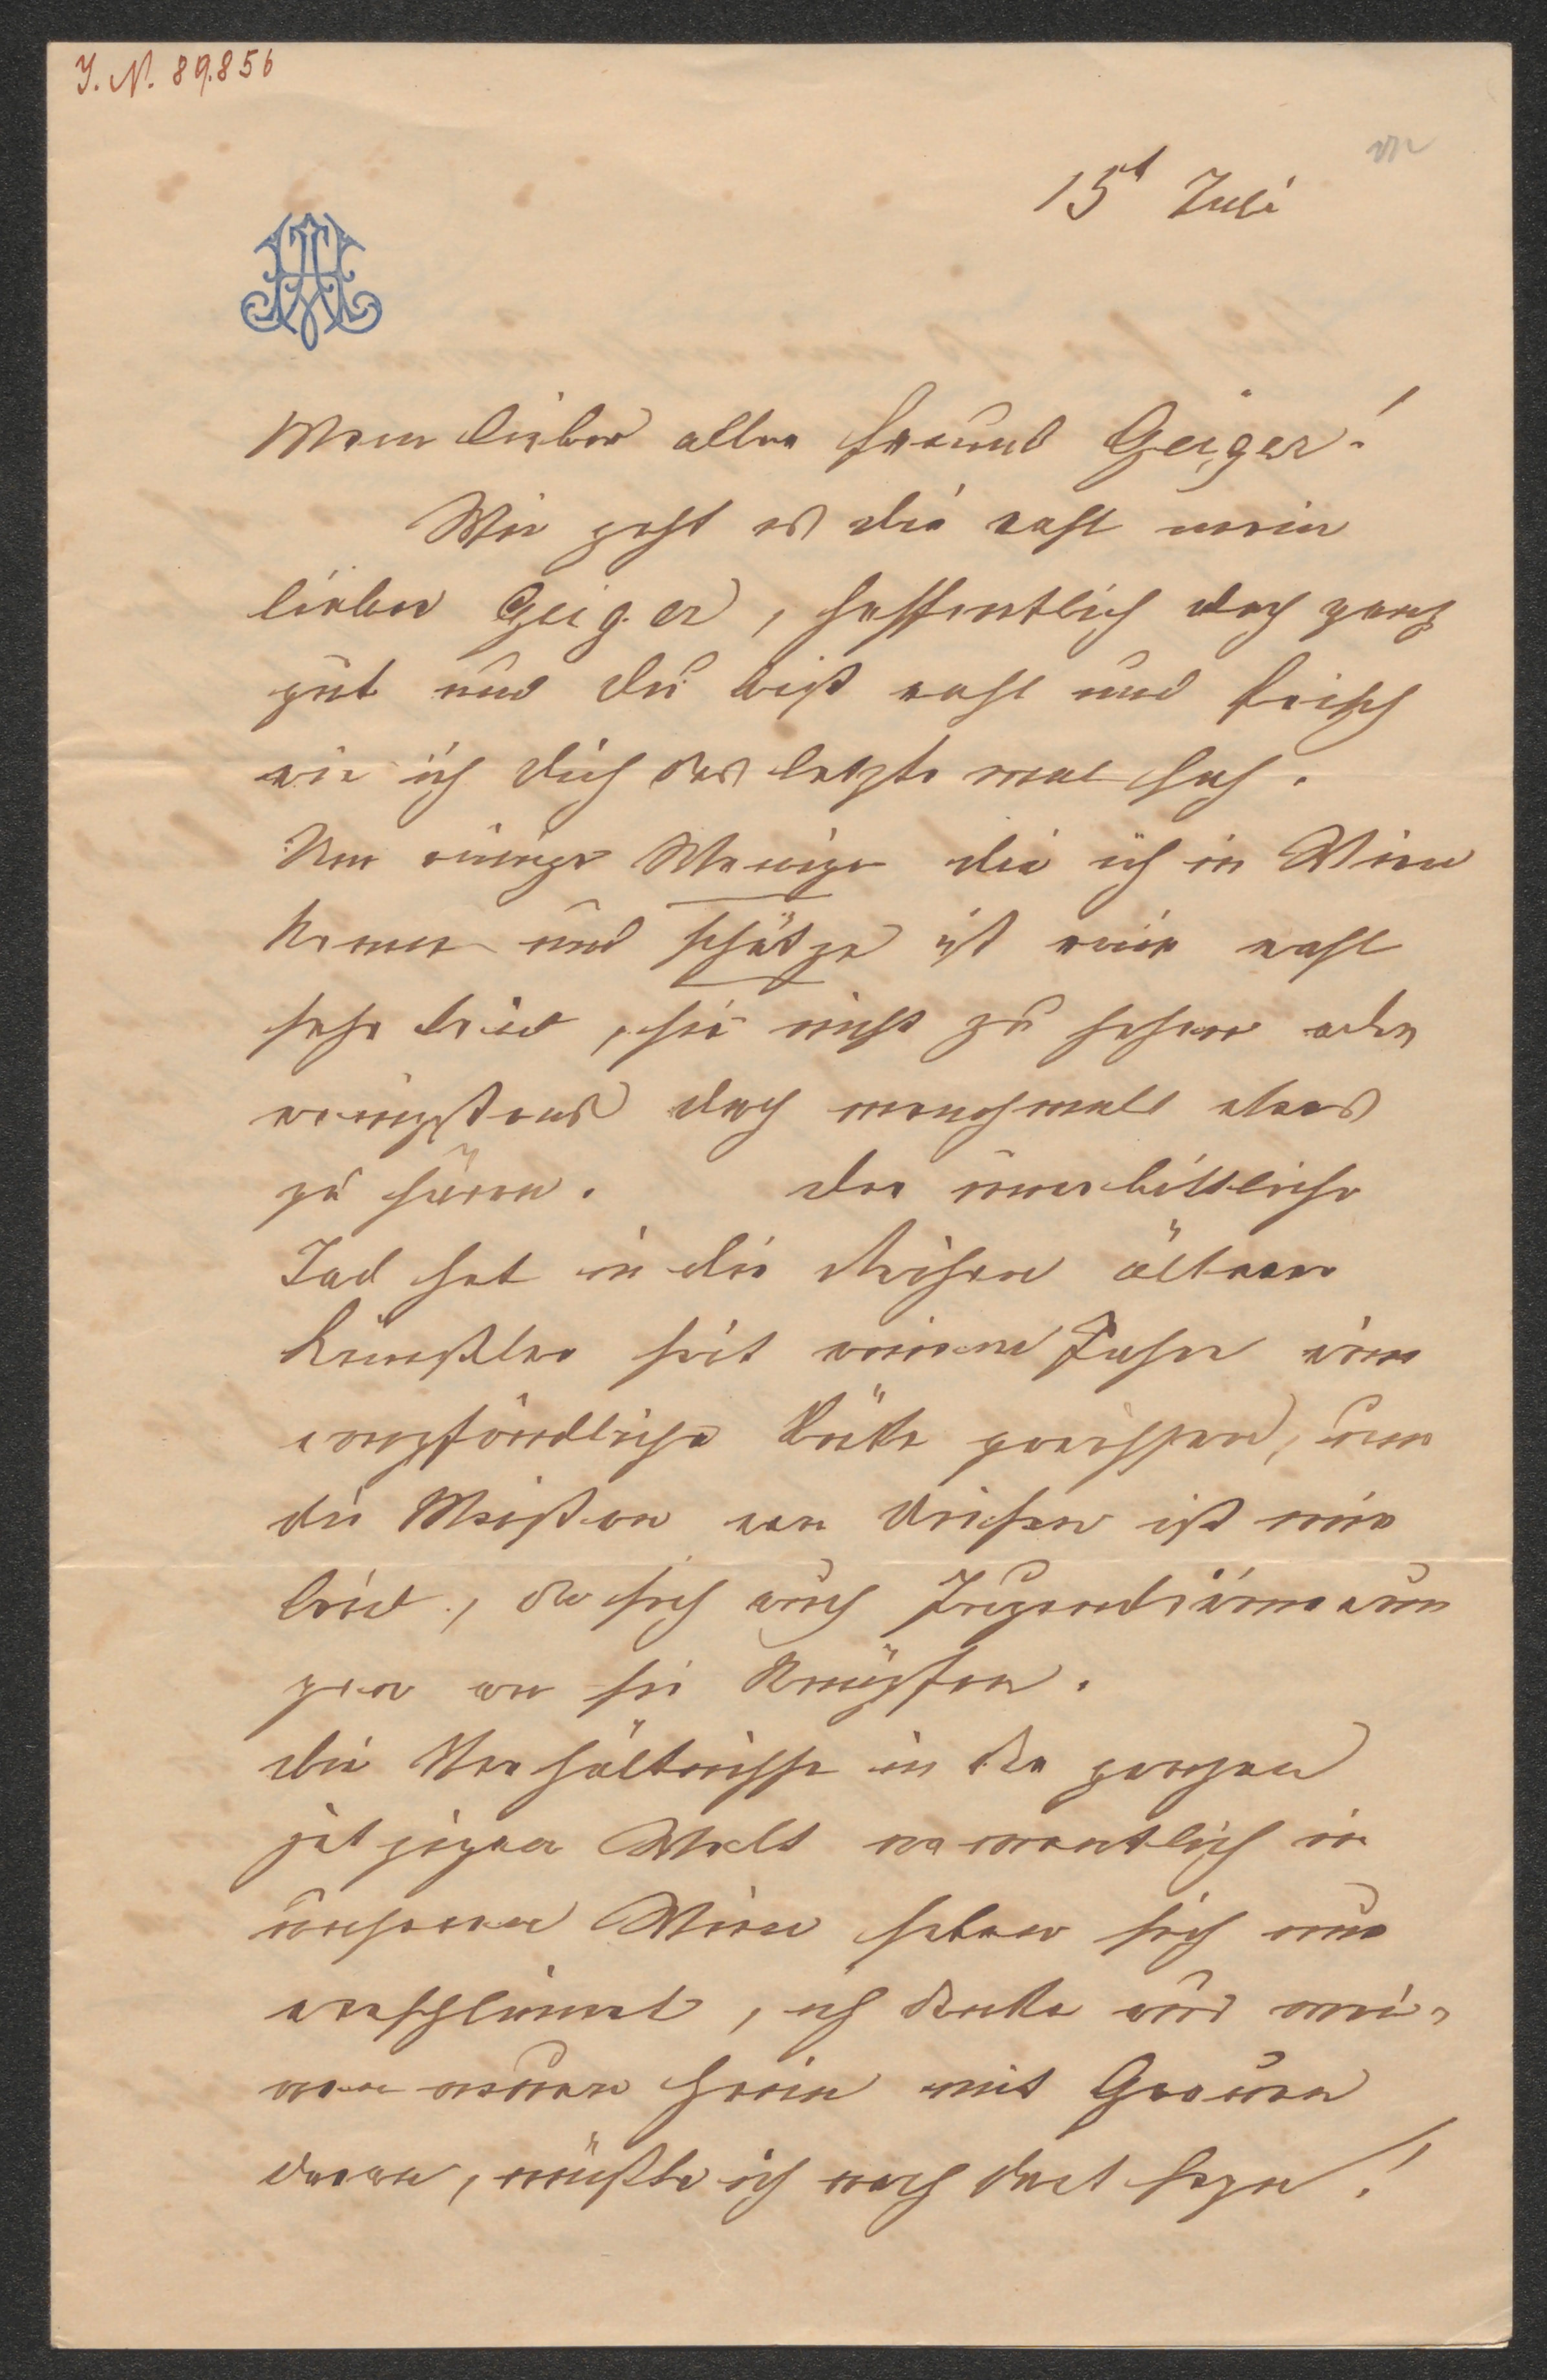 J. N. 89.856
15t Juli
Mein lieber alter Freund Geiger!
Wie geht es dir wohl mein
lieber Geiger, hoffentlich doch ganz
gut und du bist wohl und frisch
wie ich dich das letzte mal sah.
Um einige Wenige die ich in Wien
kenne und schätze ist mir wohl
sehr leid, sie nicht zu sehen oder
wenigstens doch manchmall etwas
zu hören. Der unerbittliche
Tod hat in die Reihen älterer
Künstler seit einem Jahre eine
empfindliche Lücke gerissen, um
die Meisten von diesen ist mir
leid, da sich auch Jugenderinnerun
gen an sie knüpfen.
Die Verhältnisse in der ganzen
jetzigen Welt namentlich in
unserem Wien haben sich nur
verschlimmert, ich denke von mei-
nem neuen Heim mit Grauen
daran, müßte ich noch dort seyn!